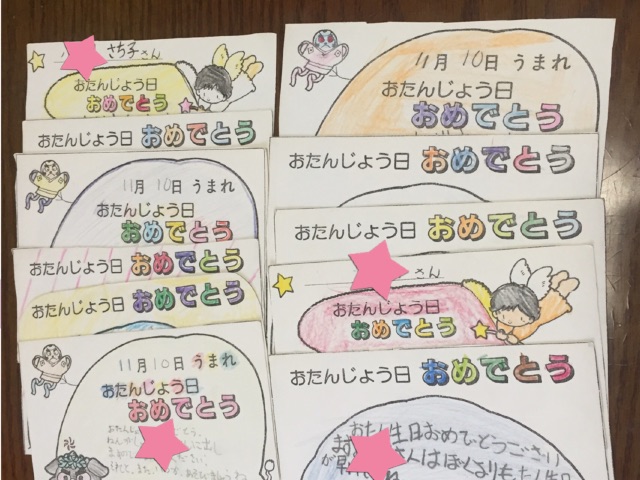 さち子さん
おたんじょう日
おめでとう
おたんじょう日 おめでとう
11月 10日 うまれ
おたんじょう日
おめでとう
おたんじょう日 おめでとう
おたんじょう日 おめでとう
11月 10日 うまれ
おたんじょう日
おめでとう
11月 10日 うまれ
おたんじょう日
おめでとう
おたんじょう日 おめでとう
おたんじょう日 おめでとう
さん
おたんじょう日
おめでとう
おたんじょう日 おめでとう
おたん生日おめでとうござい
さんはぼくよりも